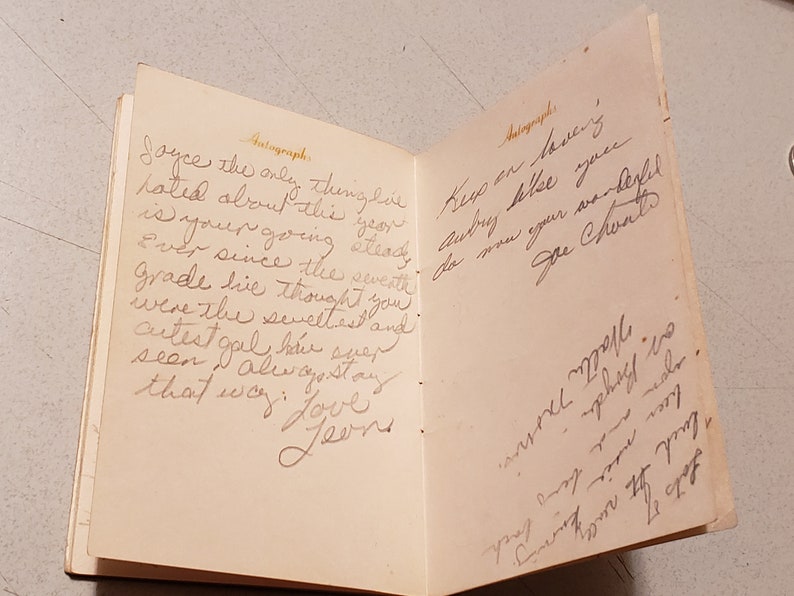 Autographs
Joyce the only thing I've
hated about this year
is your going steady
Ever since the seventh
grade I've thought you
were the sweetest and
cutest gal I've ever
seen. Always stay
that way.
Love
Leon
Autographs
Keep on lovein'
aubry like you
do now your wonderful
Joe
Lots of
luck It really
been nice
you and